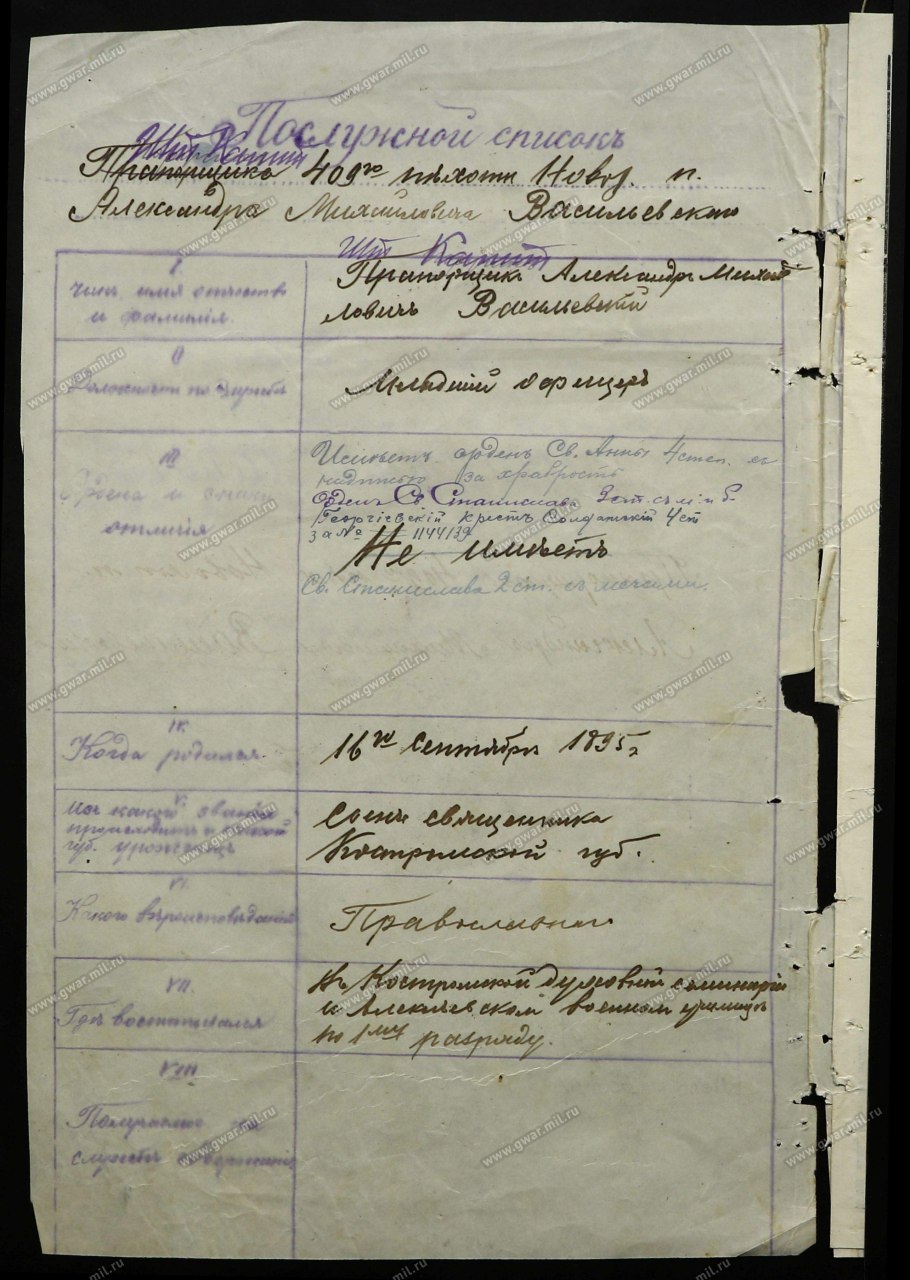 Послужной списокъ
Шт Капит
Прапорщика 409го пѣхотн Новох. п.
Александра Михайловича Васильевского
Шт Капит
I
Чинъ имя отчество
и фамилія.
Прапорщикъ Александръ Михай
ловичъ Василевский
II
Должность по службѣ
Младшій офицеръ
III
Ордена и знаки
отличія
Имѣетъ орденъ Св. Анны 4 степ. съ
надписью за храбрость
Орденъ Св Станислава 3 ст. съ м и б.
Георгіевскій крестъ Солдатскій 4 ст
за № 1144139
Не имѣетъ
Св. Станислава 2 ст. съ мечами.
IV
Когда родился
16го Сентября 1895 г
V
Изъ какого званія
происходитъ и какой
губ. уроженецъ
Сынъ священника
Костромской губ.
VI
Какого вѣроисповѣданія
Православнаго
VII.
Гдѣ воспитывался
Въ Костромской духовной семинаріи
и Алексѣевском военном училищѣ
по 1му разряду.
VIII
Получаемое на
службѣ содержаніе
www.gwar.mil.ru